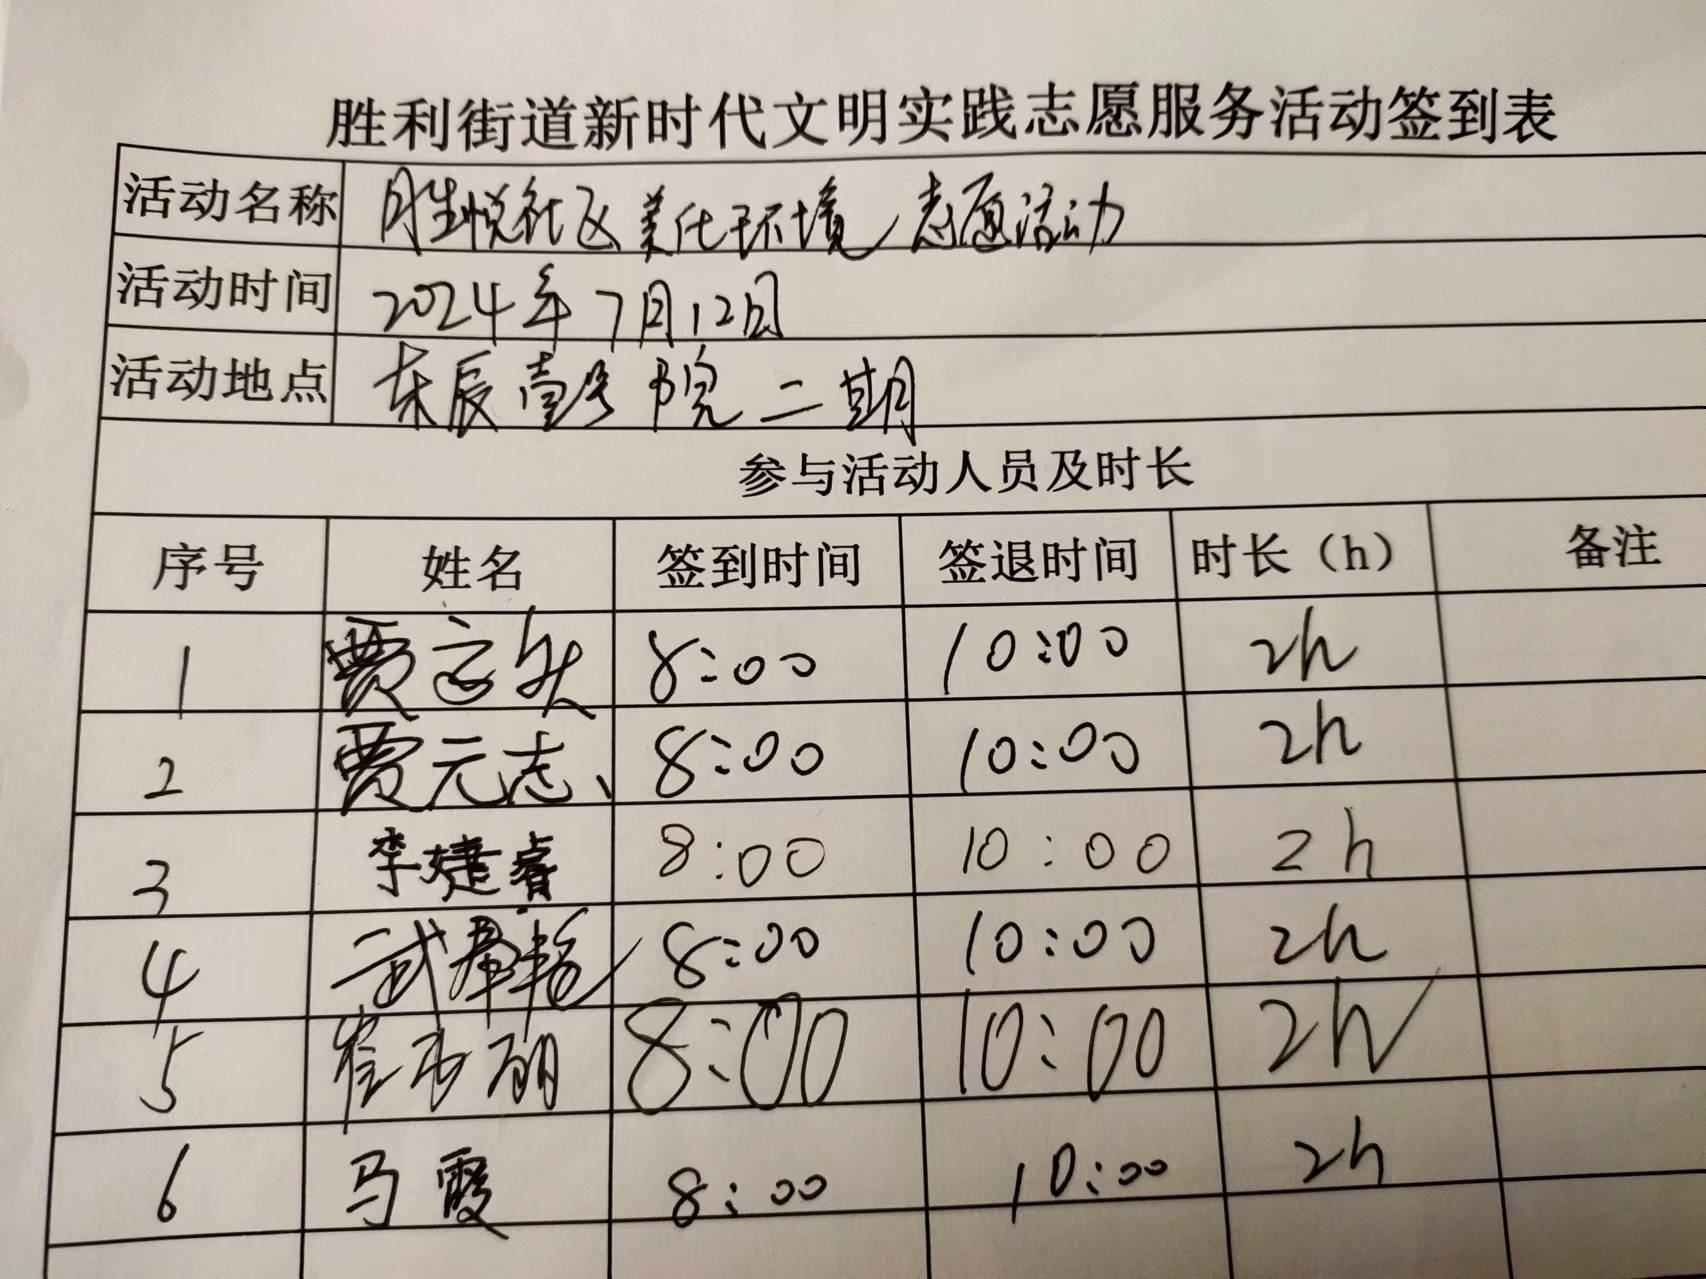 胜利街道新时代文明实践志愿服务活动签到表
活动名称 胜悦社区美化环境志愿活动
活动时间 2024年7月12日
活动地点 东辰壹号院二期
参与活动人员及时长
序号 姓名 签到时间 签退时间 时长（h） 备注
1 贾 8:00 10:00 2h
2 贾元志 8:00 10:00 2h
3 李婕睿 8:00 10:00 2h
4 武 8:00 10:00 2h
5 崔 丽 8:00 10:00 2h
6 马霞 8:00 10:00 2h